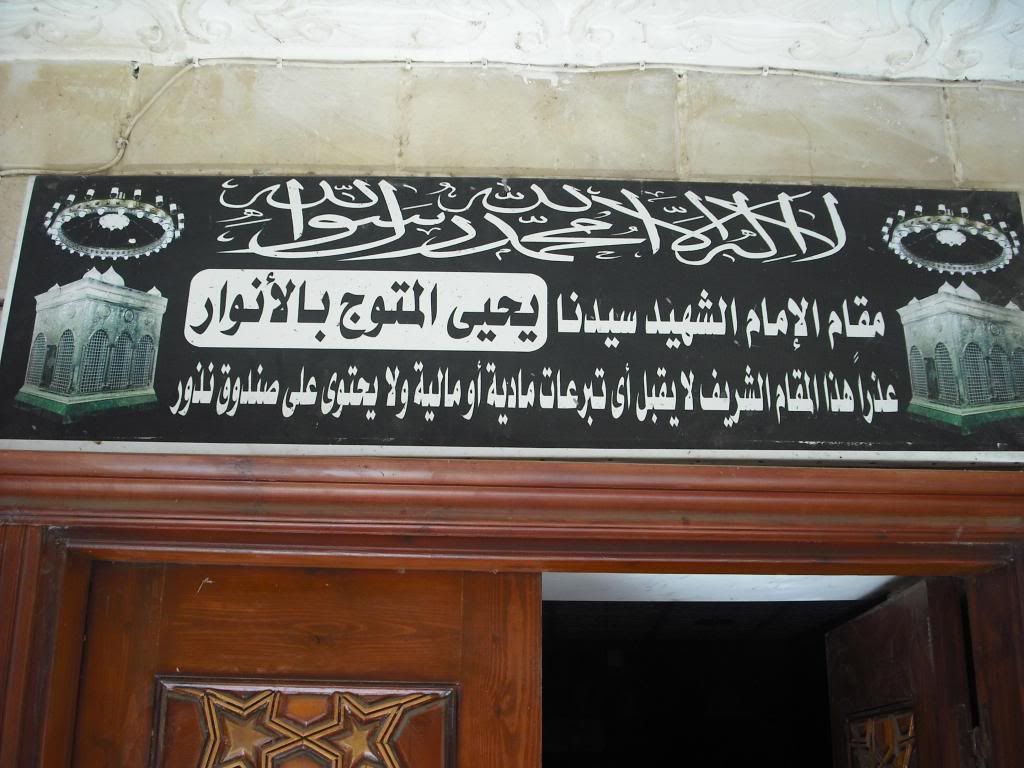 لا إله إلا الله محمد رسول الله
مقام الإمام الشهيد سيدنا يحيى المتوج بالأنوار
عذراً هذا المقام الشريف لا يقبل أى تبرعات مادية أو مالية ولا يحتوى على صندوق نذور